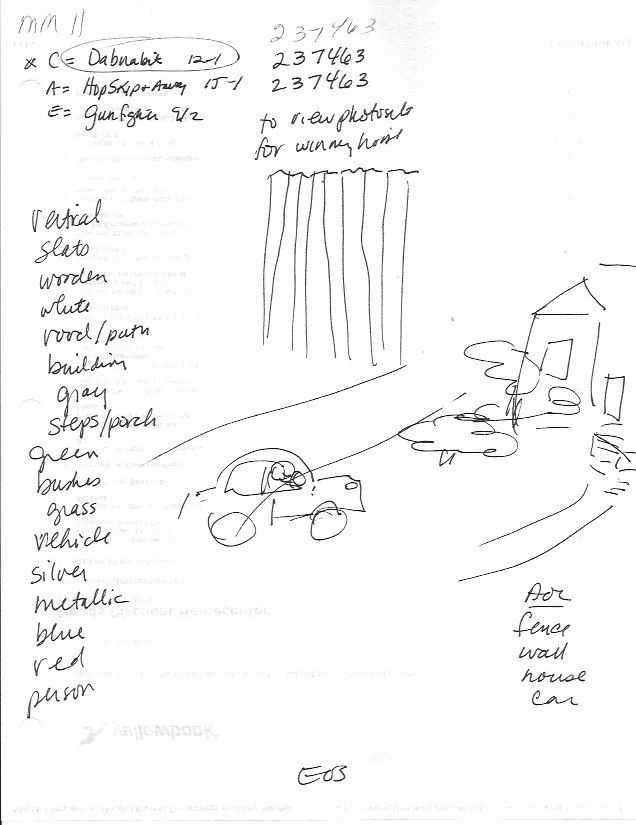 MM 11
237463
* C = Dabnabit 12-1
237463
A = HopSkip+Away 15-1
237463
E = Gunfighter 9/2
to view photosite
for winning horse
vertical
slats
wooden
white
road/path
building
gray
steps/porch
green
bushes
grass
vehicle
silver
metallic
blue
red
person
AOL
fence
wall
house
car
yellowbook
E03